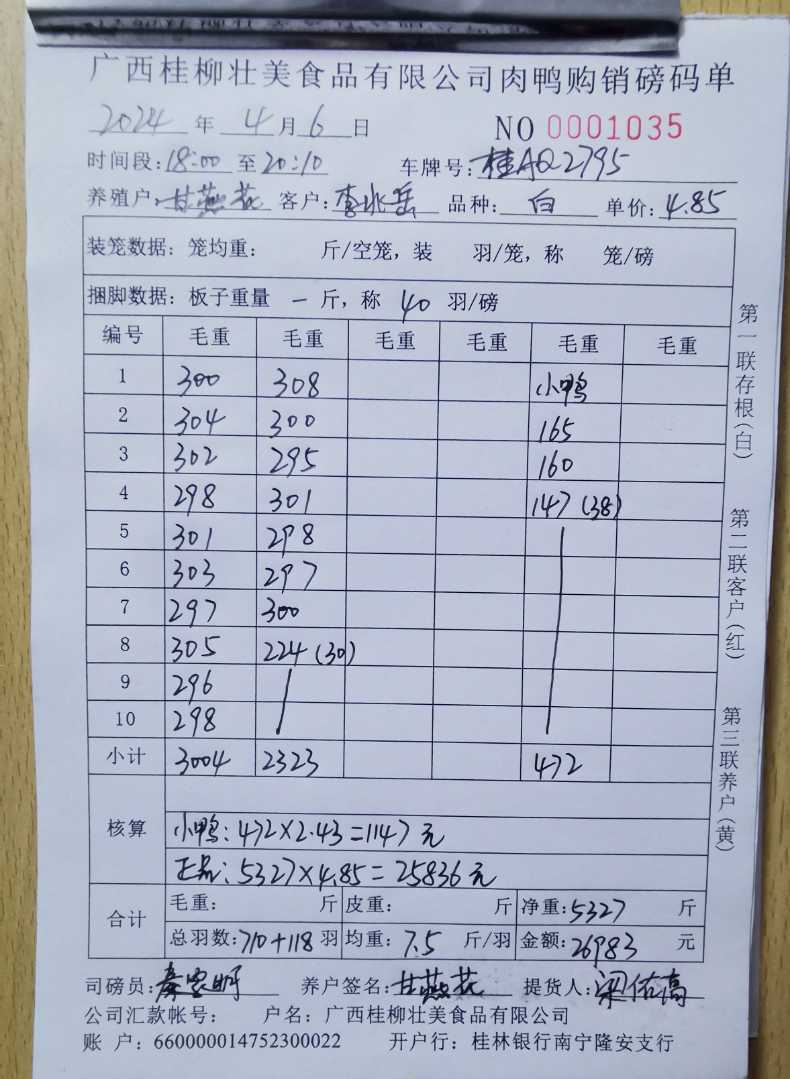 广西桂柳壮美食品有限公司肉鸭购销磅码单
2024 年 4 月 6 日 NO 0001035
时间段: 18:00 至 20:10 车牌号: 桂AQ2795
养殖户: 甘燕花 客户: 李兆岳 品种: 白 单价: 4.85
装笼数据: 笼均重: 斤/空笼, 装 羽/笼, 称 笼/磅
捆脚数据: 板子重量 一 斤, 称 40 羽/磅
编号 毛重 毛重 毛重 毛重 毛重 毛重
1 300 308 小鸭
2 304 300 165
3 302 295 160
4 298 301 147 (38)
5 301 298
6 303 297
7 297 300
8 305 224 (30)
9 296
10 298
小计 3004 2323 472
核算
小鸭: 472×2.43=1147元
正品: 5327×4.85=25836元
合计
毛重: 斤 皮重: 斤 净重: 5327 斤
总羽数: 710+118 羽 均重: 7.5 斤/羽 金额: 26983 元
司磅员: 养户签名: 甘燕花 提货人: 梁佑高
公司汇款帐号: 户名: 广西桂柳壮美食品有限公司
账 户: 660000014752300022 开户行: 桂林银行南宁隆安支行
第一联存根(白)
第二联客户(红)
第三联养户(黄)